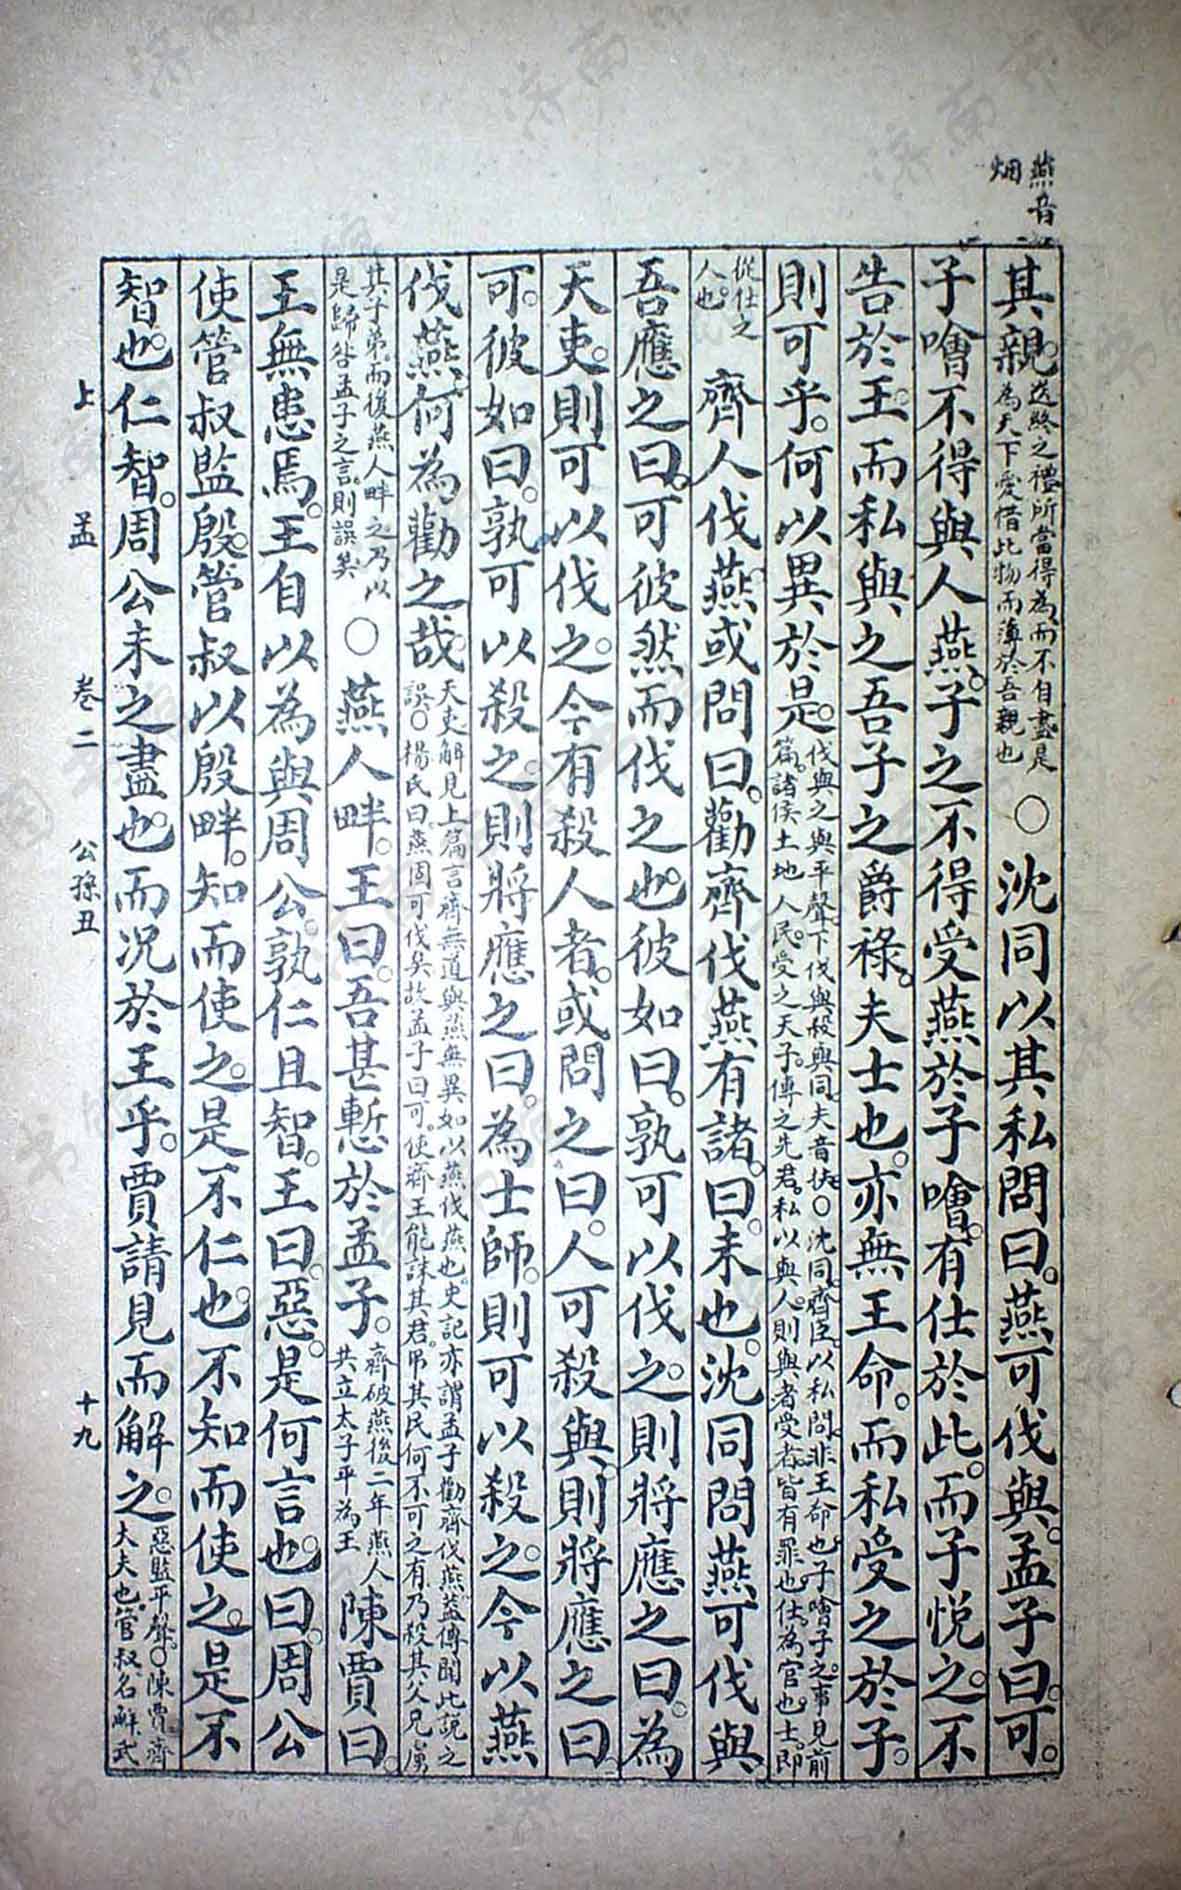 燕音
烟
其親。送終之禮所當得為而不自盡是為天下愛惜此物而薄於吾親也○沈同以其私問曰。燕可伐與。孟子曰。可。
子噲不得與人燕。子之不得受燕於子噲。有仕於此。而子悅之。不
告於王。而私與之吾子之爵祿。夫士也。亦無王命。而私受之於子。
則可乎。何以異於是。伐與之與平聲下伐與殺與同。夫音扶。○沈同。齊臣。以私問。非王命也。子噲子之。事見前篇。諸侯土地人民。受之天子。傳之先君。私以與人。則與者受者。皆有罪也。仕。為官也。士。即
從仕之人也。齊人伐燕。或問曰。勸齊伐燕有諸。曰。未也。沈同問燕可伐與
吾應之曰。可彼然而伐之也。彼如曰。孰可以伐之。則將應之曰。為
天吏。則可以伐之。今有殺人者。或問之曰。人可殺與。則將應之曰
可。彼如曰。孰可以殺之。則將應之曰。為士師。則可以殺之。今以燕
伐燕。何為勸之哉。天吏解見上篇言齊無道與燕無異如以燕伐燕也。史記亦謂孟子勸齊伐燕。蓋傳聞此說之誤。○楊氏曰。燕固可伐矣。故孟子曰可。使齊王能誅其君。吊其民。何不可之有。乃殺其父兄虜
其子弟。而後燕人畔之。乃以是歸咎孟子之言。則誤矣○燕人畔。王曰。吾甚慙於孟子。齊破燕後二年燕人共立太子平為王陳賈曰。
王無患焉。王自以為與周公。孰仁且智。王曰。惡。是何言也。曰。周公
使管叔監殷。管叔以殷畔。知而使之。是不仁也。不知而使之。是不
智也。仁智。周公未之盡也。而況於王乎。賈請見而解之。惡監平聲。○陳賈齊大夫也。管叔名鮮武
上孟 卷二 公孫丑 十九